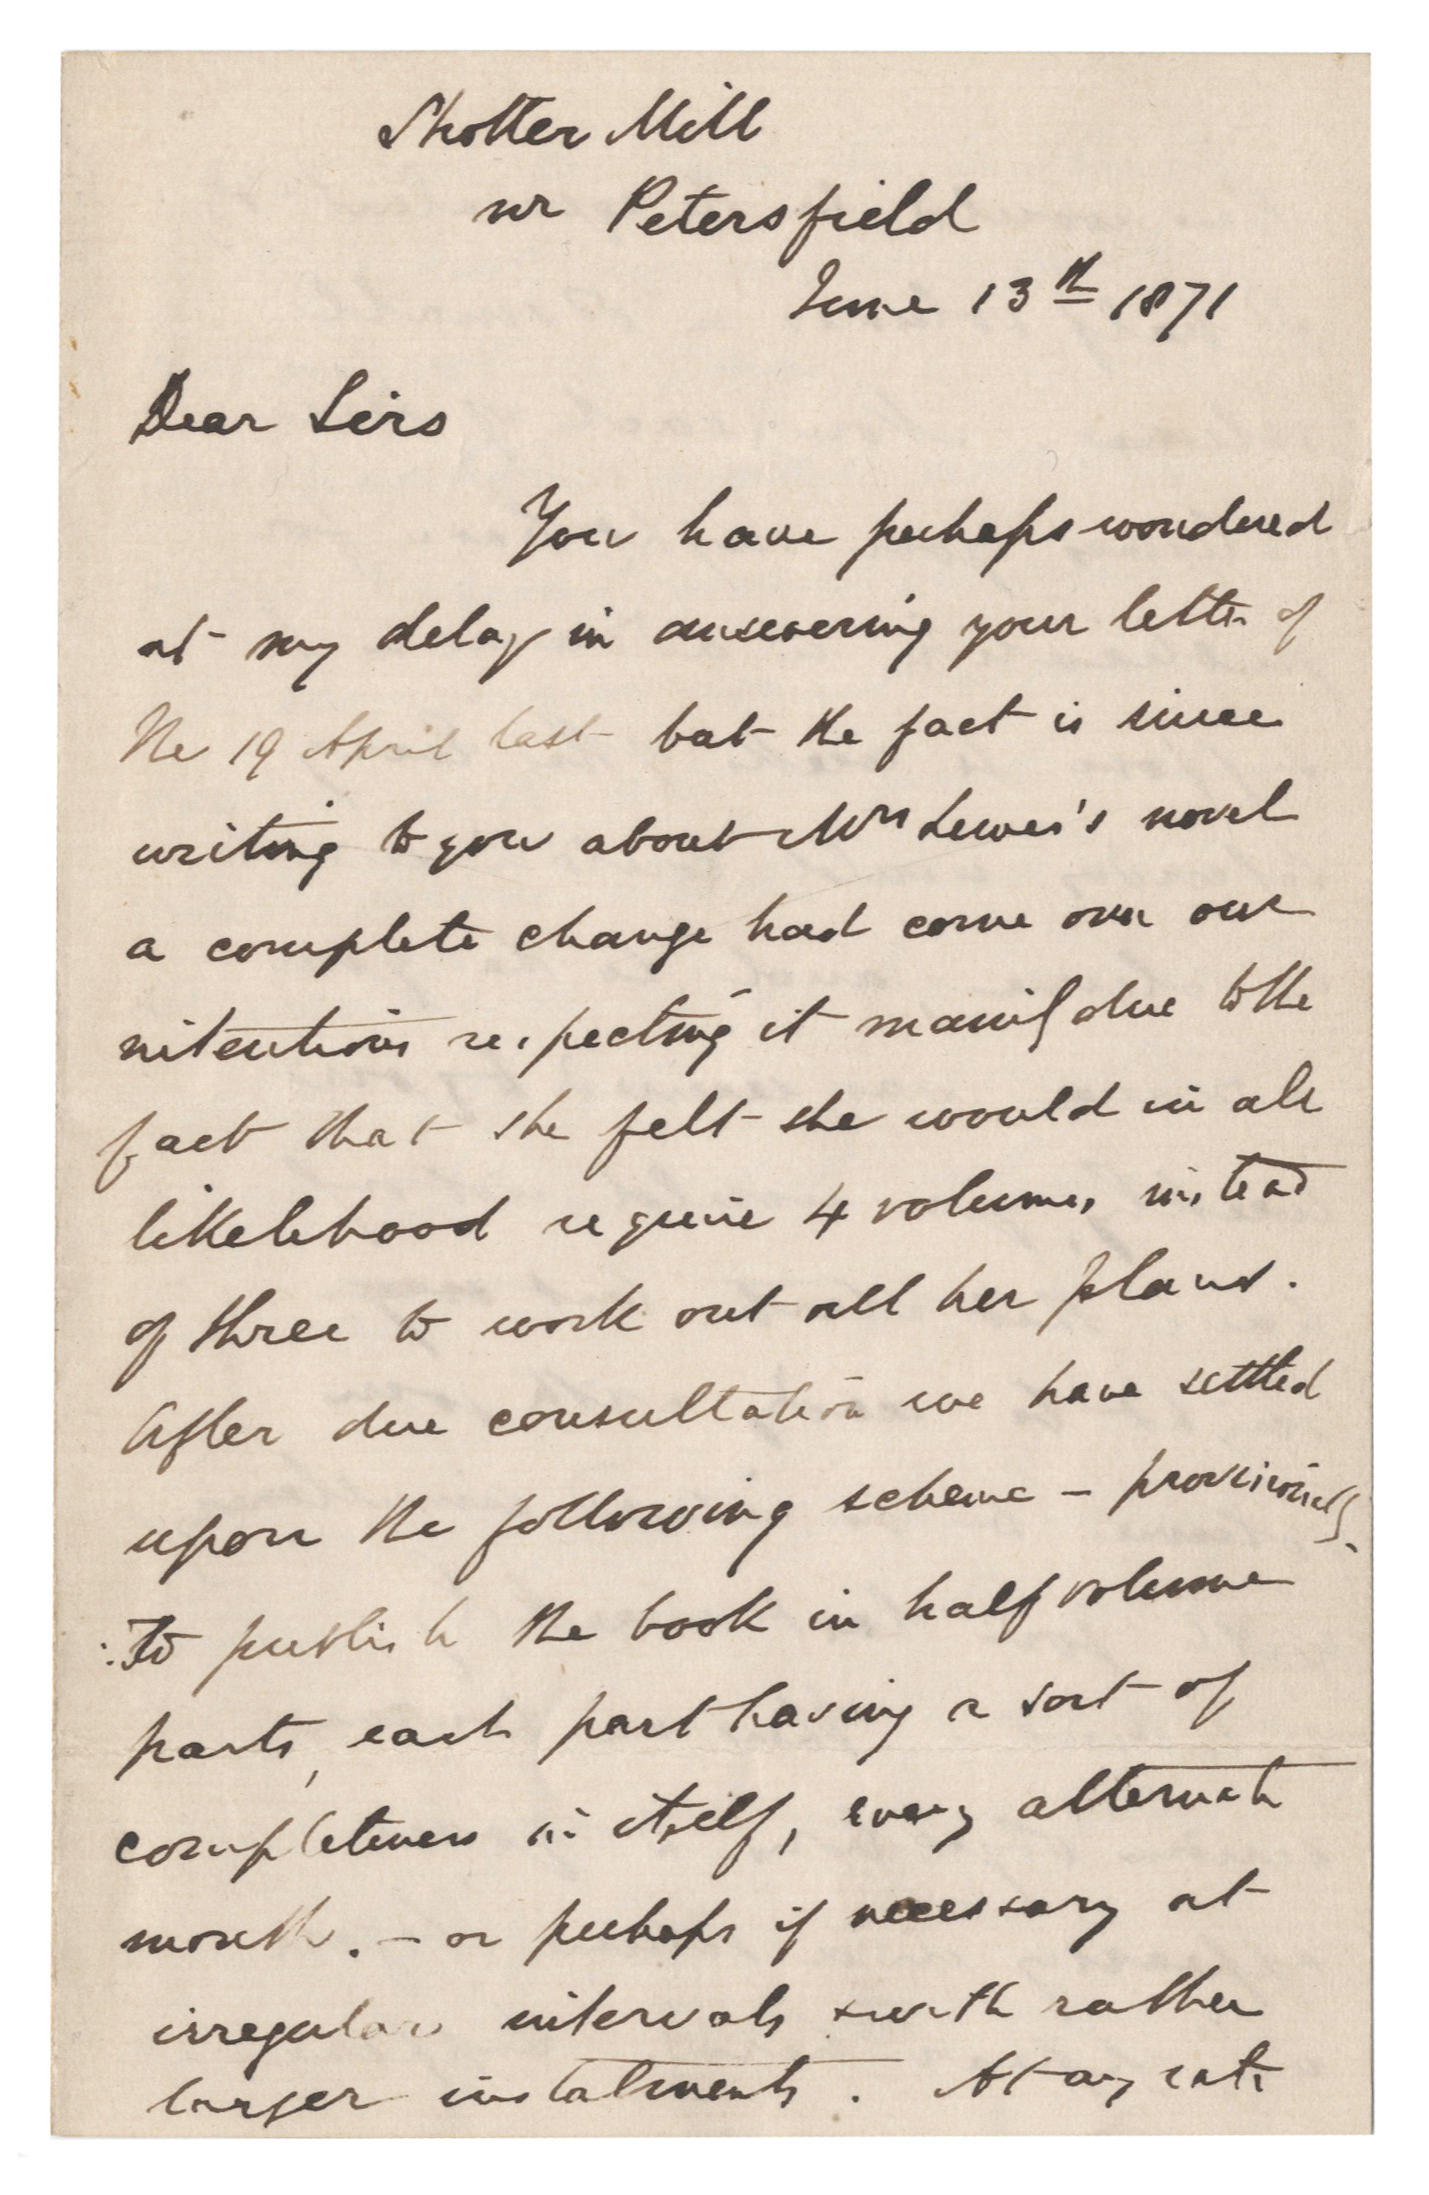 Shotter Mill
nr Petersfield
June 13th 1871
Dear Sirs
You have perhaps wondered
at my delay in answering your letter of
the 19 April last but the fact is since
writing to you about Mrs Lewes's novel
a complete change had come over our
intentions respecting it mainly due to the
fact that she felt she would in all
likelihood require 4 volumes instead
of three to work out all her plans.
After due consultation we have settled
upon the following scheme – provisionally.
: To publish the book in half volume
parts, each part having a sort of
completeness in itself, every alternate
month. – or perhaps if necessary at
irregular intervals with rather
larger instalments. At any rate